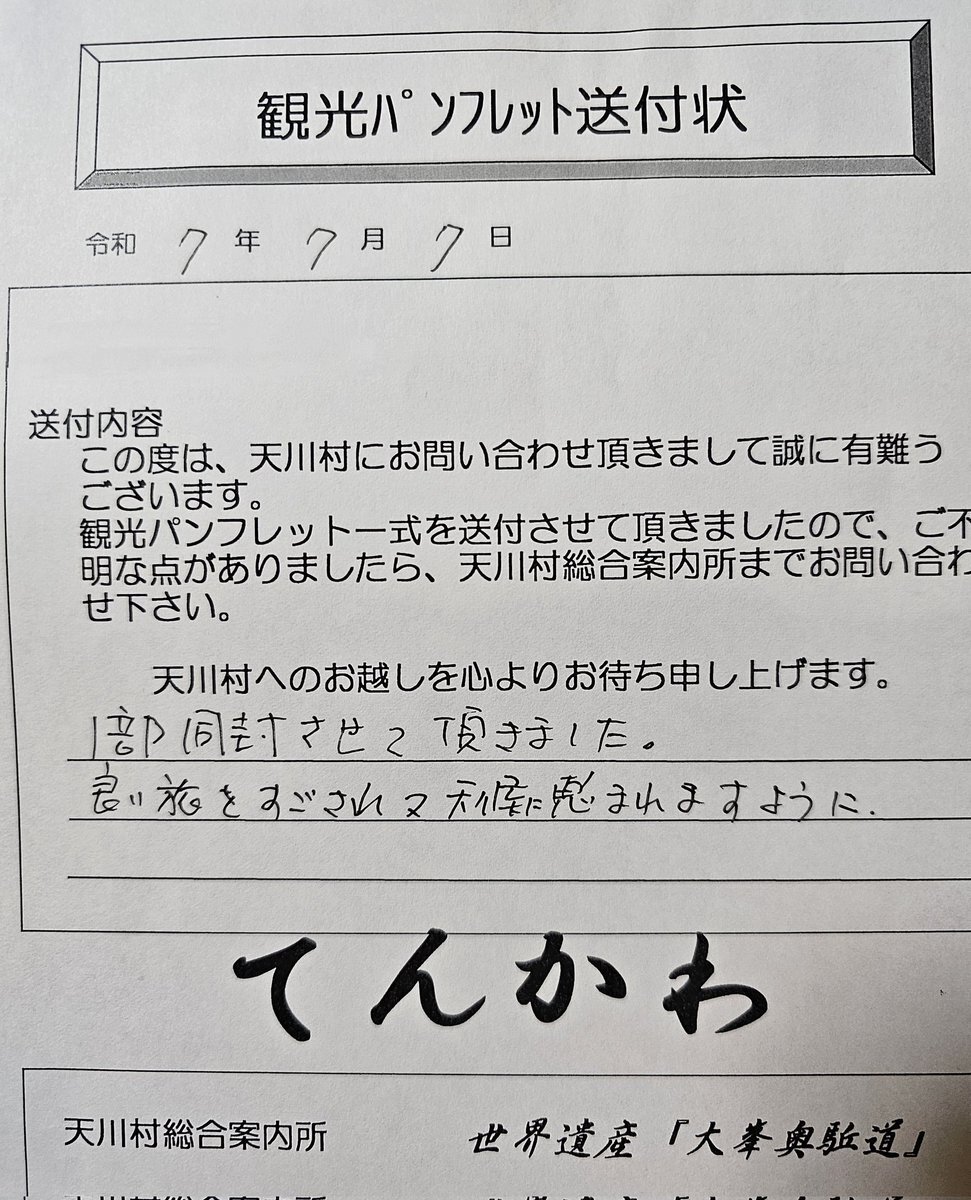 観光パンフレット送付状
令和 7 年 7 月 7 日
送付内容
この度は、天川村にお問い合わせ頂きまして誠に有難う
ございます。
観光パンフレット一式を送付させて頂きましたので、ご不
明な点がありましたら、天川村総合案内所までお問い合わ
せ下さい。
天川村へのお越しを心よりお待ち申し上げます。
1部同封させて頂きました。
良い旅をすごされ天候に恵まれますように.
てんかわ
天川村総合案内所 世界遺産「大峯奥駈道」